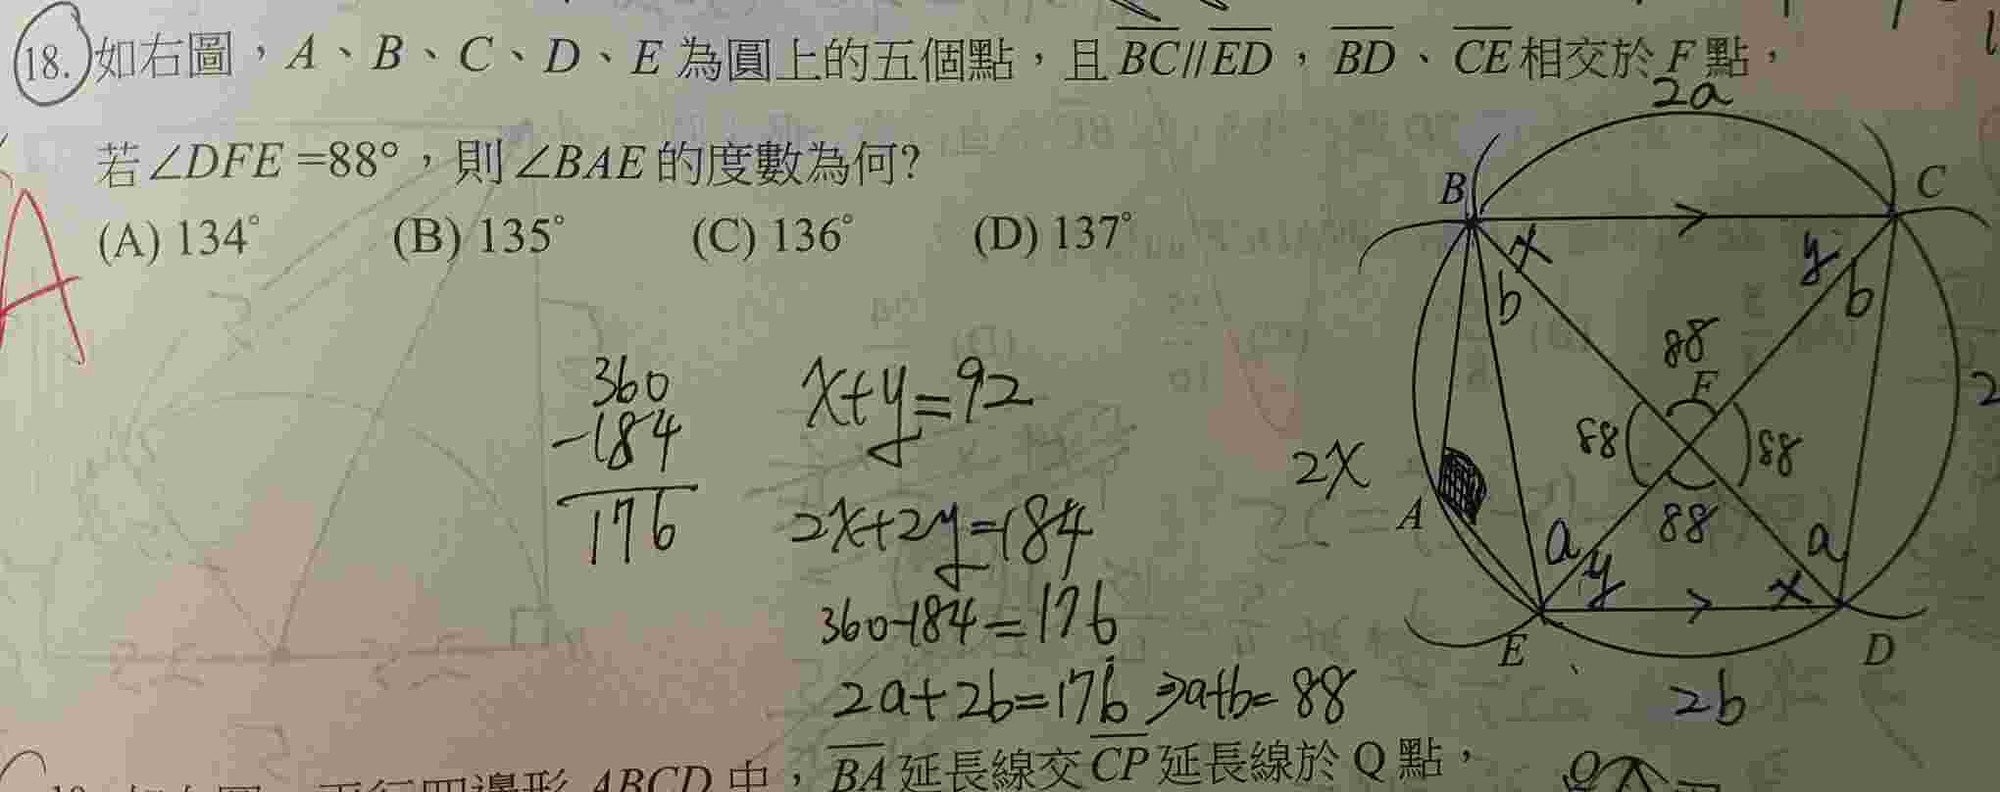 18. 如右圖，A、B、C、D、E 為圓上的五個點，且 BC//ED，BD、CE 相交於 F 點，
若∠DFE=88°，則∠BAE 的度數為何?
(A) 134° (B) 135° (C) 136° (D) 137°
A
360
-184
176
x+y=92
2x+2y=184
360-184=176
2a+2b=176 ⇒a+b=88
2a
B
C
x
y
b
b
88
F
88
88
88
2x
2
A
a
y
x
a
E
D
2b
BA 延長線交 CP 延長線於 Q 點，